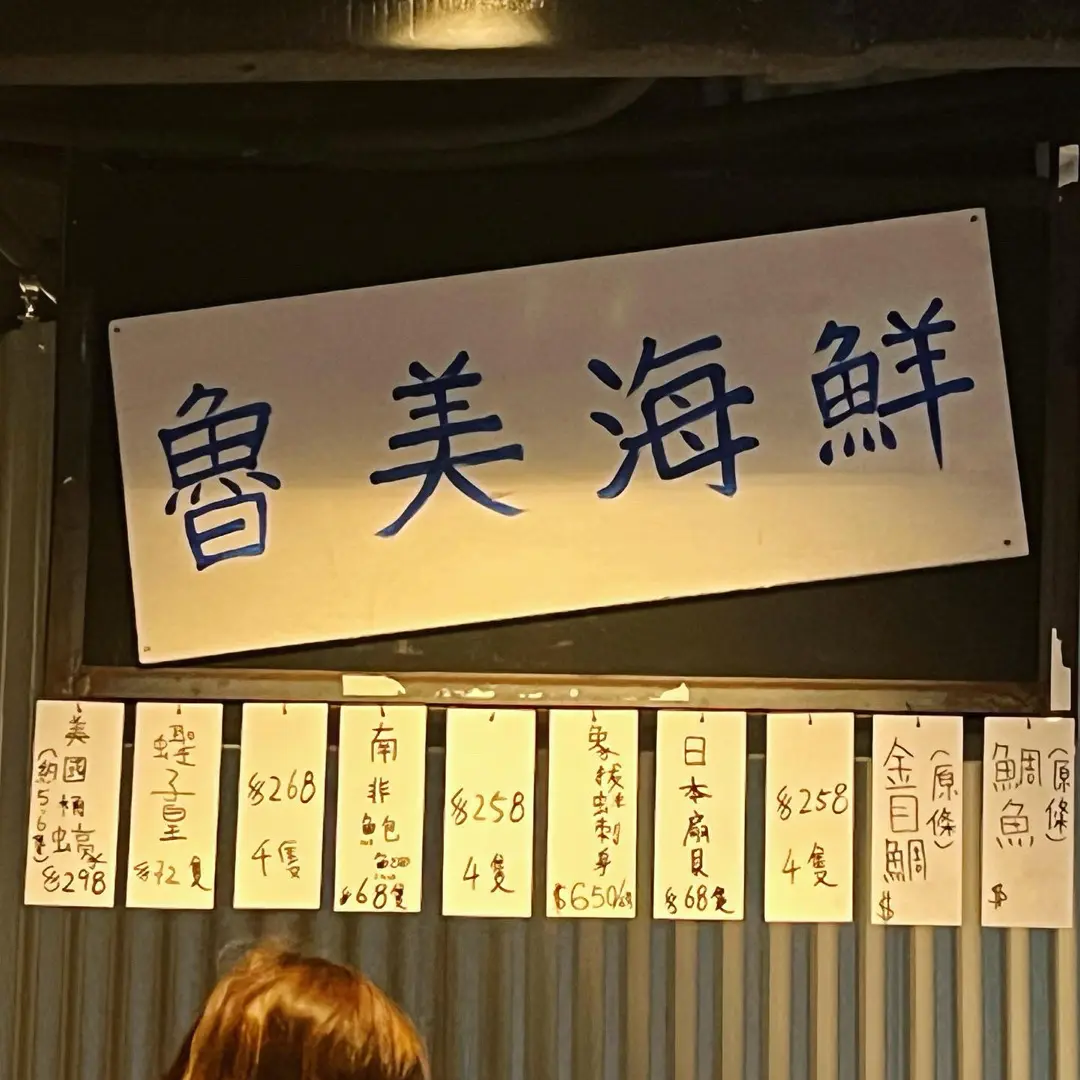 魯美海鮮
美國桶蠔
(約5.6隻)
$298
蟶子皇
$72隻
$268
4隻
南非鮑
$68隻
$258
4隻
象拔蚌刺身
$650/
日本扇貝
$68隻
$258
4隻
(原條)
金目鯛
$
(原條)
鯛魚
$